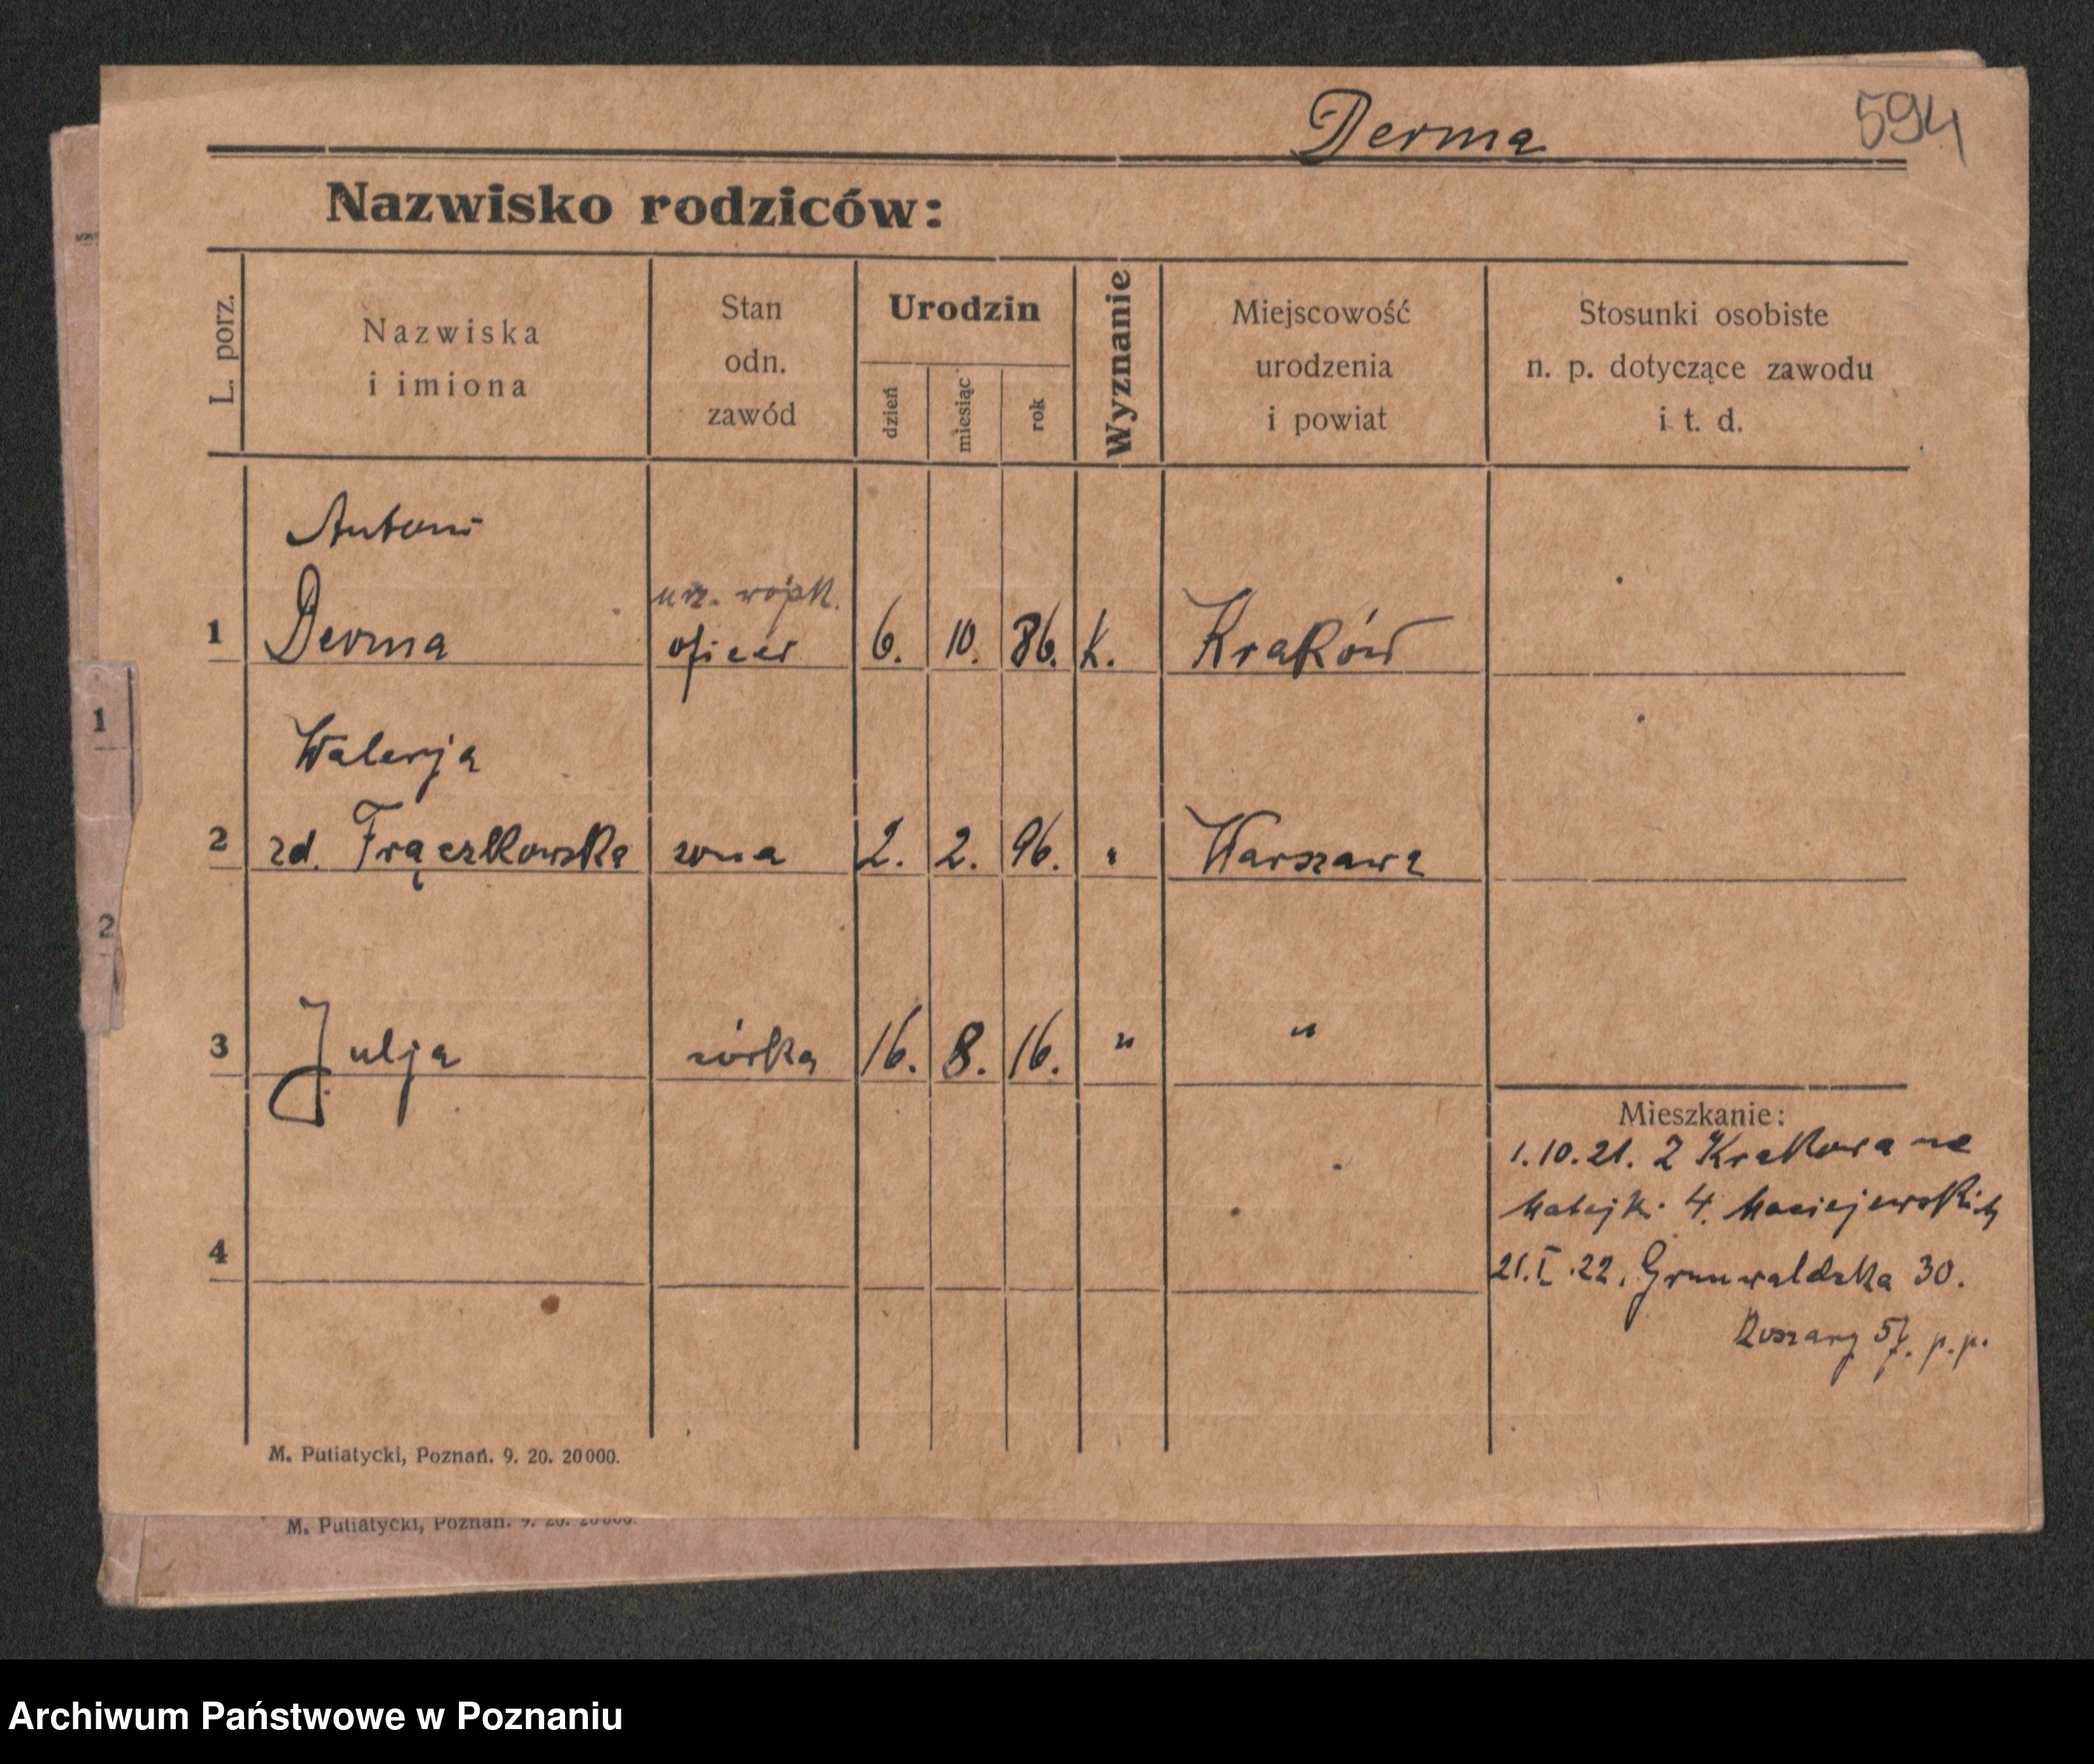 Derma
594
Nazwisko rodziców:
L. porz.
Nazwiska
i imiona
Stan
odn.
zawód
Urodzin
dzień
miesiąc
rok
Wyznanie
Miejscowość
urodzenia
i powiat
Stosunki osobiste
n. p. dotyczące zawodu
i t. d.
Antoni
urz. wojsk.
1 Derma oficer 6. 10. 86. K. Kraków
Walerja
2 zd. Frączkowska żona 2. 2. 96. " Warszawa
3 Julja córka 16. 8. 16. " "
Mieszkanie:
1.10.21. Z Krakowa na
Matejki 4. Maciejewskich
4
21.I.22. Grunwaldzka 30.
57. p.p.
M. Putiatycki, Poznań. 9. 20. 20000.
M. Putiatycki, Poznań. 9. 20. 20000.
1
2
Archiwum Państwowe w Poznaniu